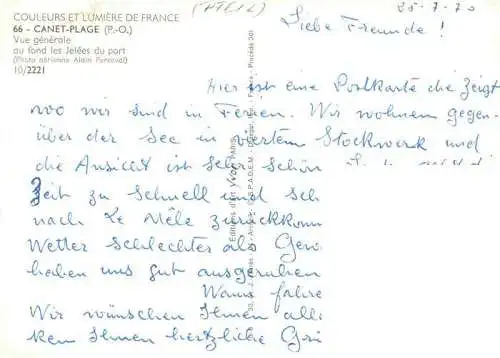 COULEURS ET LUMIÈRE DE FRANCE
66 - CANET-PLAGE (P.-O.)
Vue générale
au fond les Jetées du port
(Photo aérienne Alain Perceval)
10/2221
25-7-70
Liebe Freunde!
Hier ist eine Postkarte die zeigt
wo wir sind in Ferien. Wir wohnen gegen-
über der See in viertem Stockwerk und
die Ansicht ist sehr schön
Zeit zu schnell und sch
nach Le Mêle zurückkom
Wetter schlechter als Gew
haben uns gut ausgeruhen
Wann fahre
Wir wünschen Ihnen alle
ken Ihnen hertzliche Grü
Editions d'art Yvon PARIS